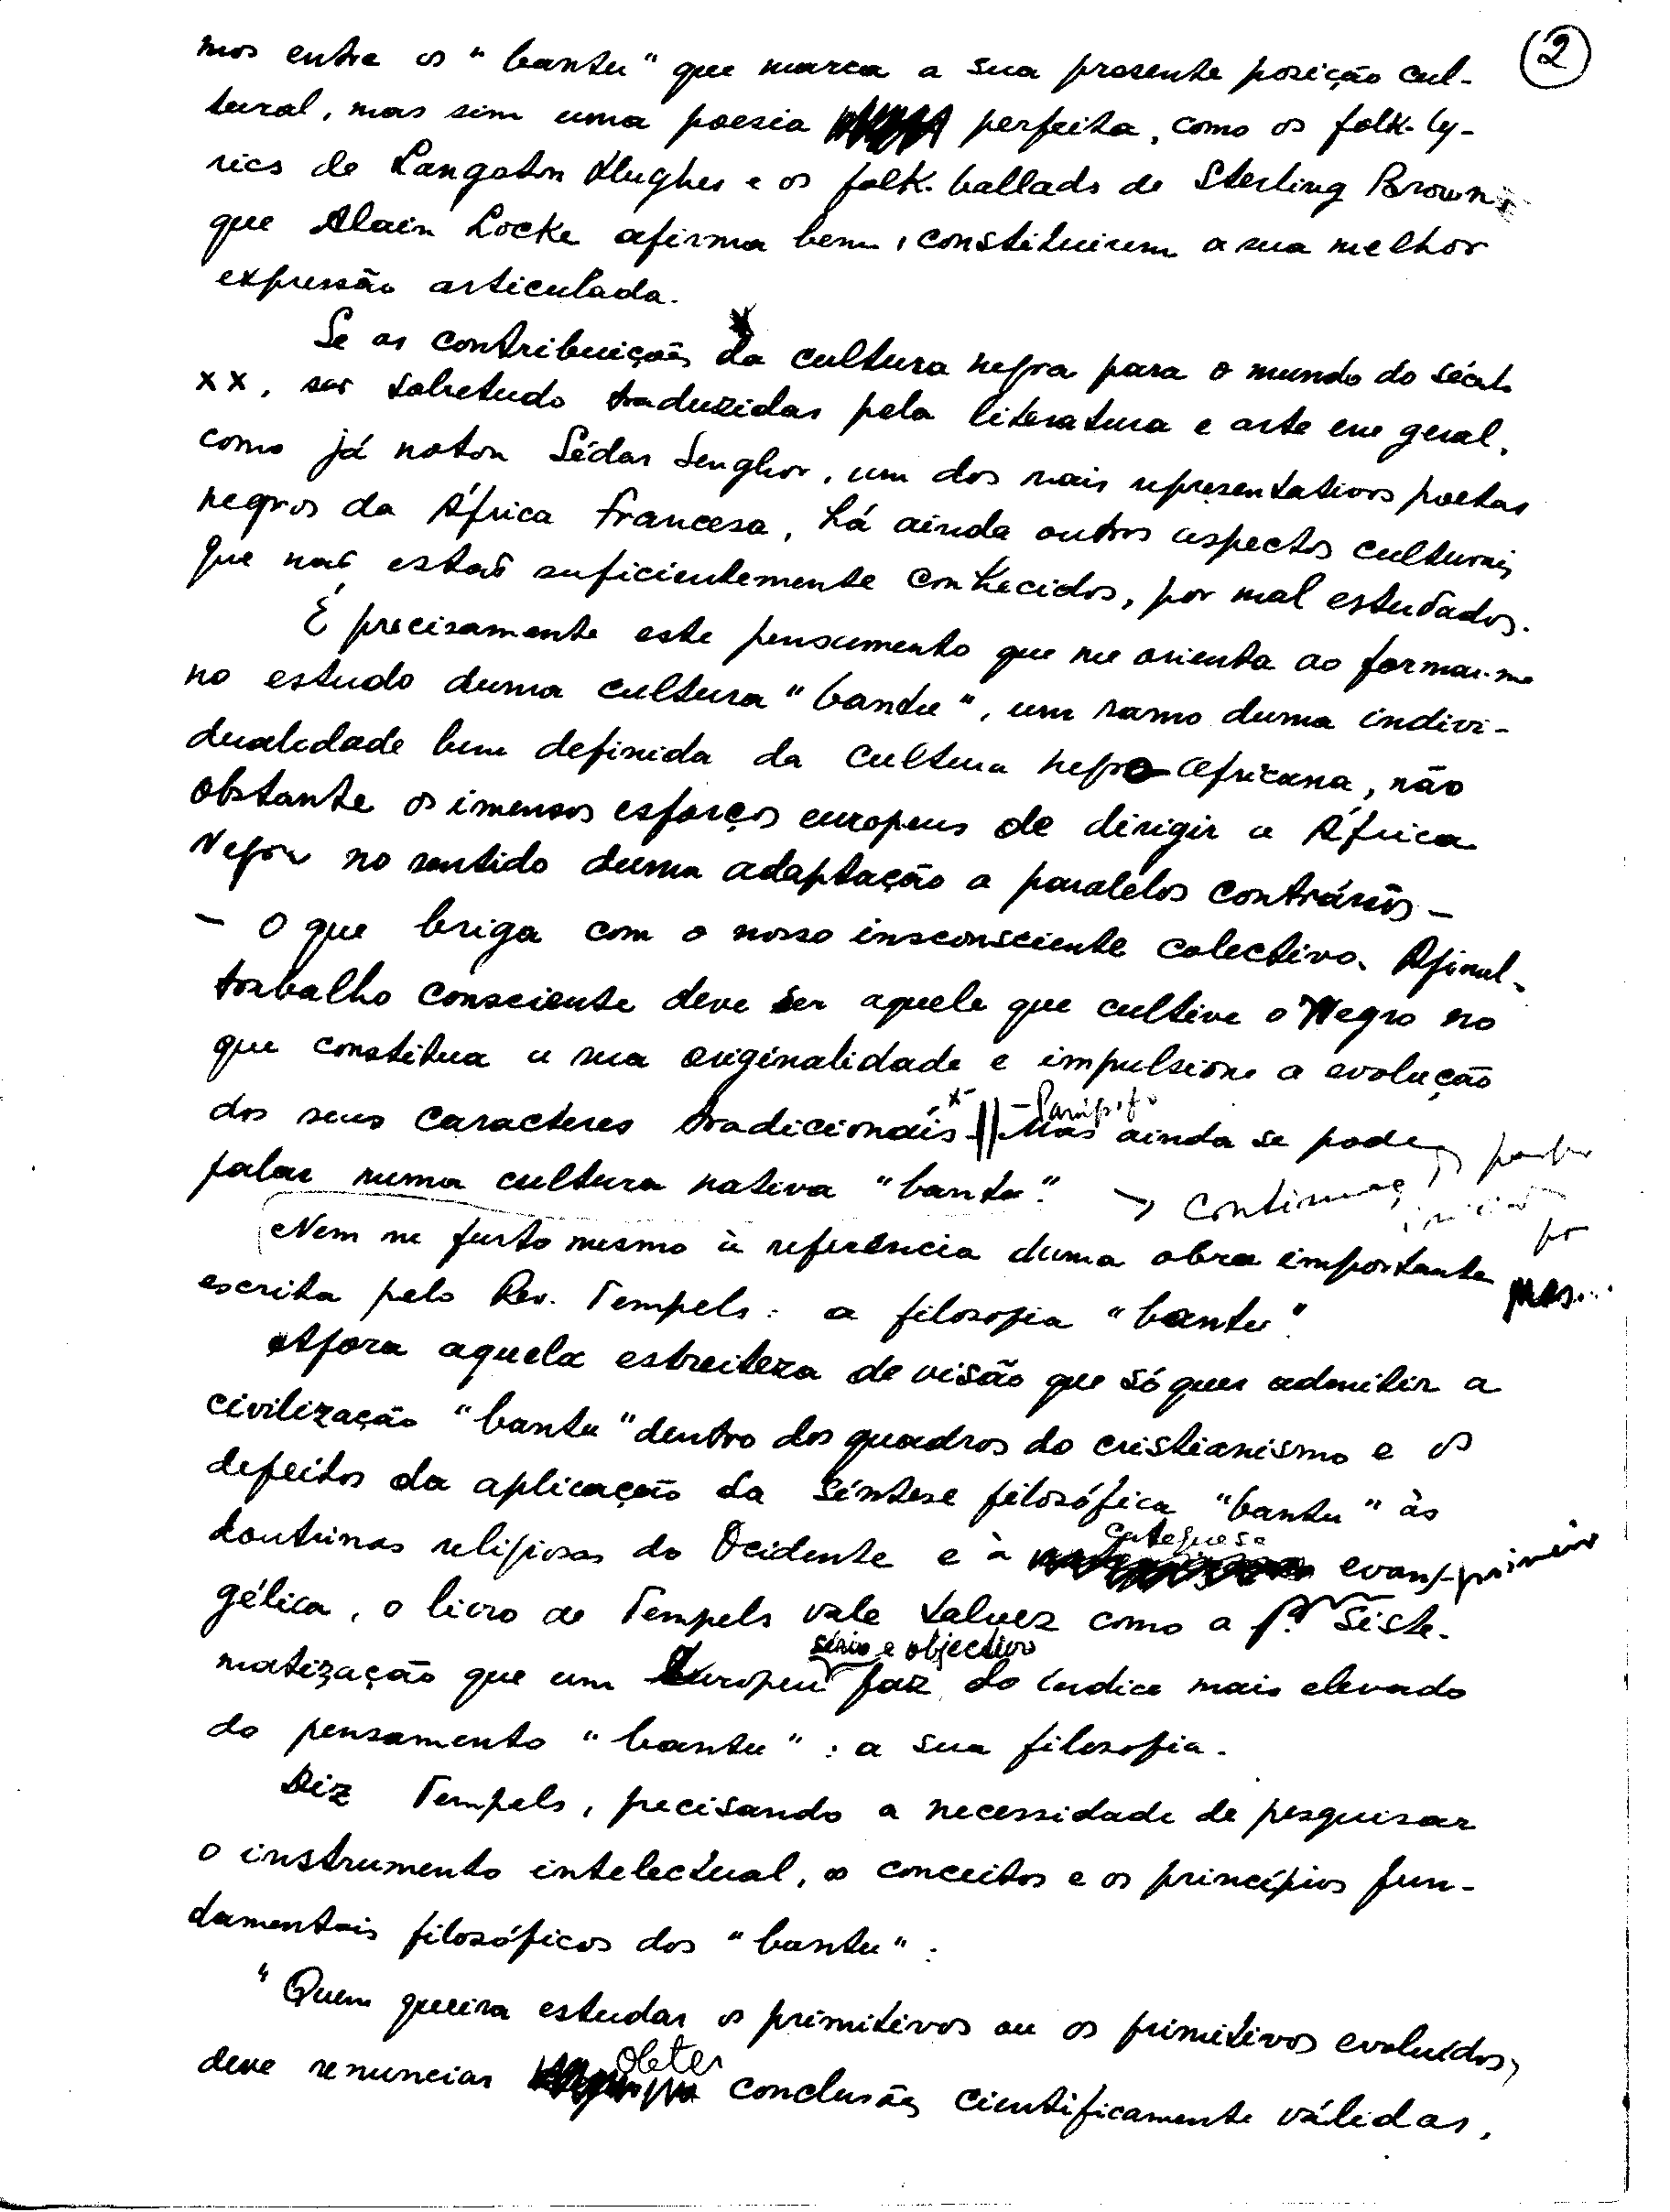 2
mos entre os "bantu" que marca a sua presente posição cul-
tural, mas sim uma poesia perfeita, como os folk-ly-
rics de Langston Hughes e os folk-ballads de Sterling Brown,
que Alain Locke afirma bem, constituirem a sua melhor
expressão articulada.
Se as contribuições da cultura negra para o mundo do século
XX, são sobretudo traduzidas pela literatura e arte em geral,
como já notou Sédar Senghor, um dos mais representativos poetas
negros da África Francesa, há ainda outros aspectos culturais
que não estão suficientemente conhecidos, por mal estudados.
É precisamente este pensamento que me orienta ao formar-me
no estudo duma cultura "bantu", um ramo duma indivi-
dualidade bem definida da cultura negro-africana, não
obstante os imensos esforços europeus de dirigir a África
Negra no sentido duma adaptação a paralelos contrários -
- O que briga com o nosso insconsciente colectivo. Afinal,
trabalho consciente deve ser aquele que cultive o Negro no
que constitua a sua originalidade e impulsione a evolução
- Parágrafo
dos seus caracteres tradicionais. Mas ainda se pode
falar numa cultura nativa "bantu".
Nem me furto mesmo à referência duma obra importante
mas...
escrita pelo Rev. Tempels: a filosofia "bantu".
Afora aquela estreiteza de visão que só quer admitir a
civilização "bantu" dentro dos quadros do cristianismo e os
defeitos da aplicação da síntese filosófica "bantu" às
catequese
doutrinas religiosas do Ocidente e à evan-
primeira
gélica, o livro de Tempels vale talvez como a 1ª siste-
sério e objectivo
matização que um Europeu faz do índice mais elevado
do pensamento "bantu": a sua filosofia.
Diz Tempels, precisando a necessidade de pesquisar
o instrumento intelectual, os conceitos e os princípios fun-
damentais filosóficos dos "bantu":
"Quem queira estudar os primitivos ou os primitivos evoluídos,
obter
deve renunciar conclusões cientificamente válidas,